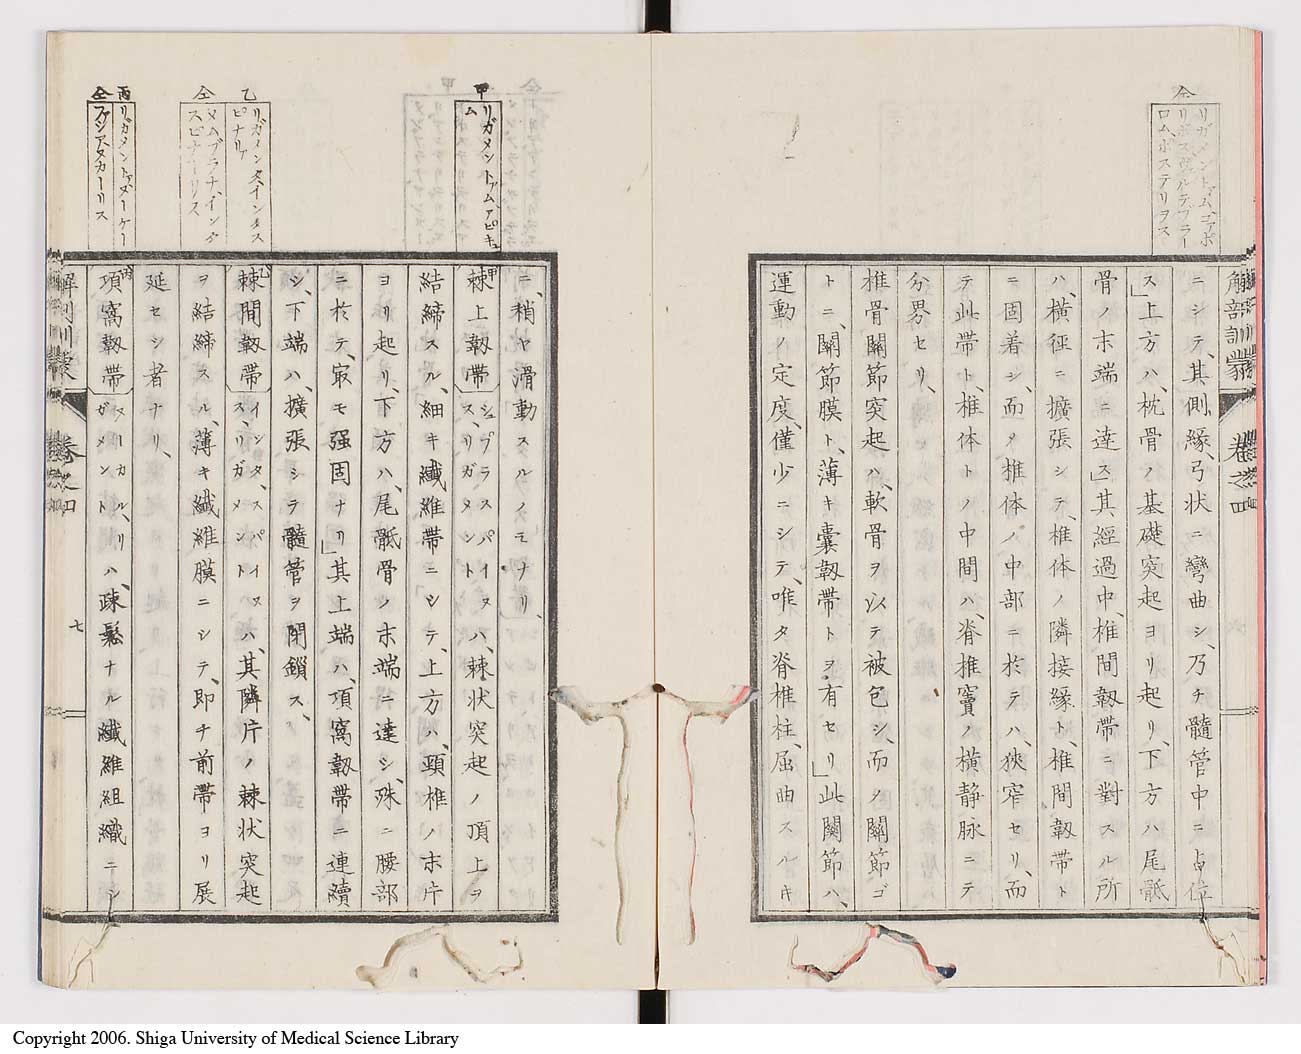 仝
リガメントァム、コァポ
リポス、ヴェルテブラー
ロム、ポステリヲス
解剖訓蒙
卷之四
ニシテ、其側縁、弓状ニ彎曲シ、乃チ髓管中ニ占位
ス」上方ハ、枕骨ノ基礎突起ヨリ起リ、下方ハ尾骶
骨ノ末端ニ達ス」其經過中、椎間韌帯ニ對スル所
ハ、横徑ニ擴張シテ、椎体ノ隣接縁ト、椎間韌帯ト
ニ固着シ、而〆椎体ノ中部ニ於テハ、狹窄セリ、而
テ此帯ト、椎体トノ中間ハ、脊椎竇ノ横静脉ニテ
分界セリ、
椎骨關節突起ハ、軟骨ヲ以テ被包シ、而〆關節ゴ
トニ、關節膜ト、薄キ嚢韌帯トヲ有セリ」此關節ハ、
運動ノ定度、僅少ニシテ、唯タ脊椎柱、屈曲スル𪜈
甲
リガメントァム、アピキュ
ム
乙
リガメンタ、インタス
ピナリア
仝
メムブラナ、インタ
スピナーリス
丙
リガメントァ、ヌーケー
仝
ファシア、ヌカーリス
ニ、稍ヤ滑動スタルノミナリ、
甲棘上韌帯シュプラスパイヌス、リガメントハ、棘状突起ノ頂上ヲ
結締スル、細キ纖維帯ニシテ、上方ハ、頸椎ノ末片
ヨリ起リ、下方ハ、尾骶骨ノ末端ニ達シ、殊ニ腰部
ニ於テ、㝡モ强固ナリ」其上端ハ、項窩韌帯ニ連續
シ、下端ハ、擴張シテ髓管ヲ閉鎖ス、
乙棘間韌帯インタスパイヌス、リガメントハ、其隣片ノ棘状突起
ヲ結締スル、薄キ纖維膜ニシテ、即チ前帯ヨリ展
延セシ者ナリ、
丙項窩韌帯ヌーカル、リガメントハ、疎鬆ナル纖維組織ニシ
解剖訓蒙
卷之四
七
Copyright 2006. Shiga University of Medical Science Library